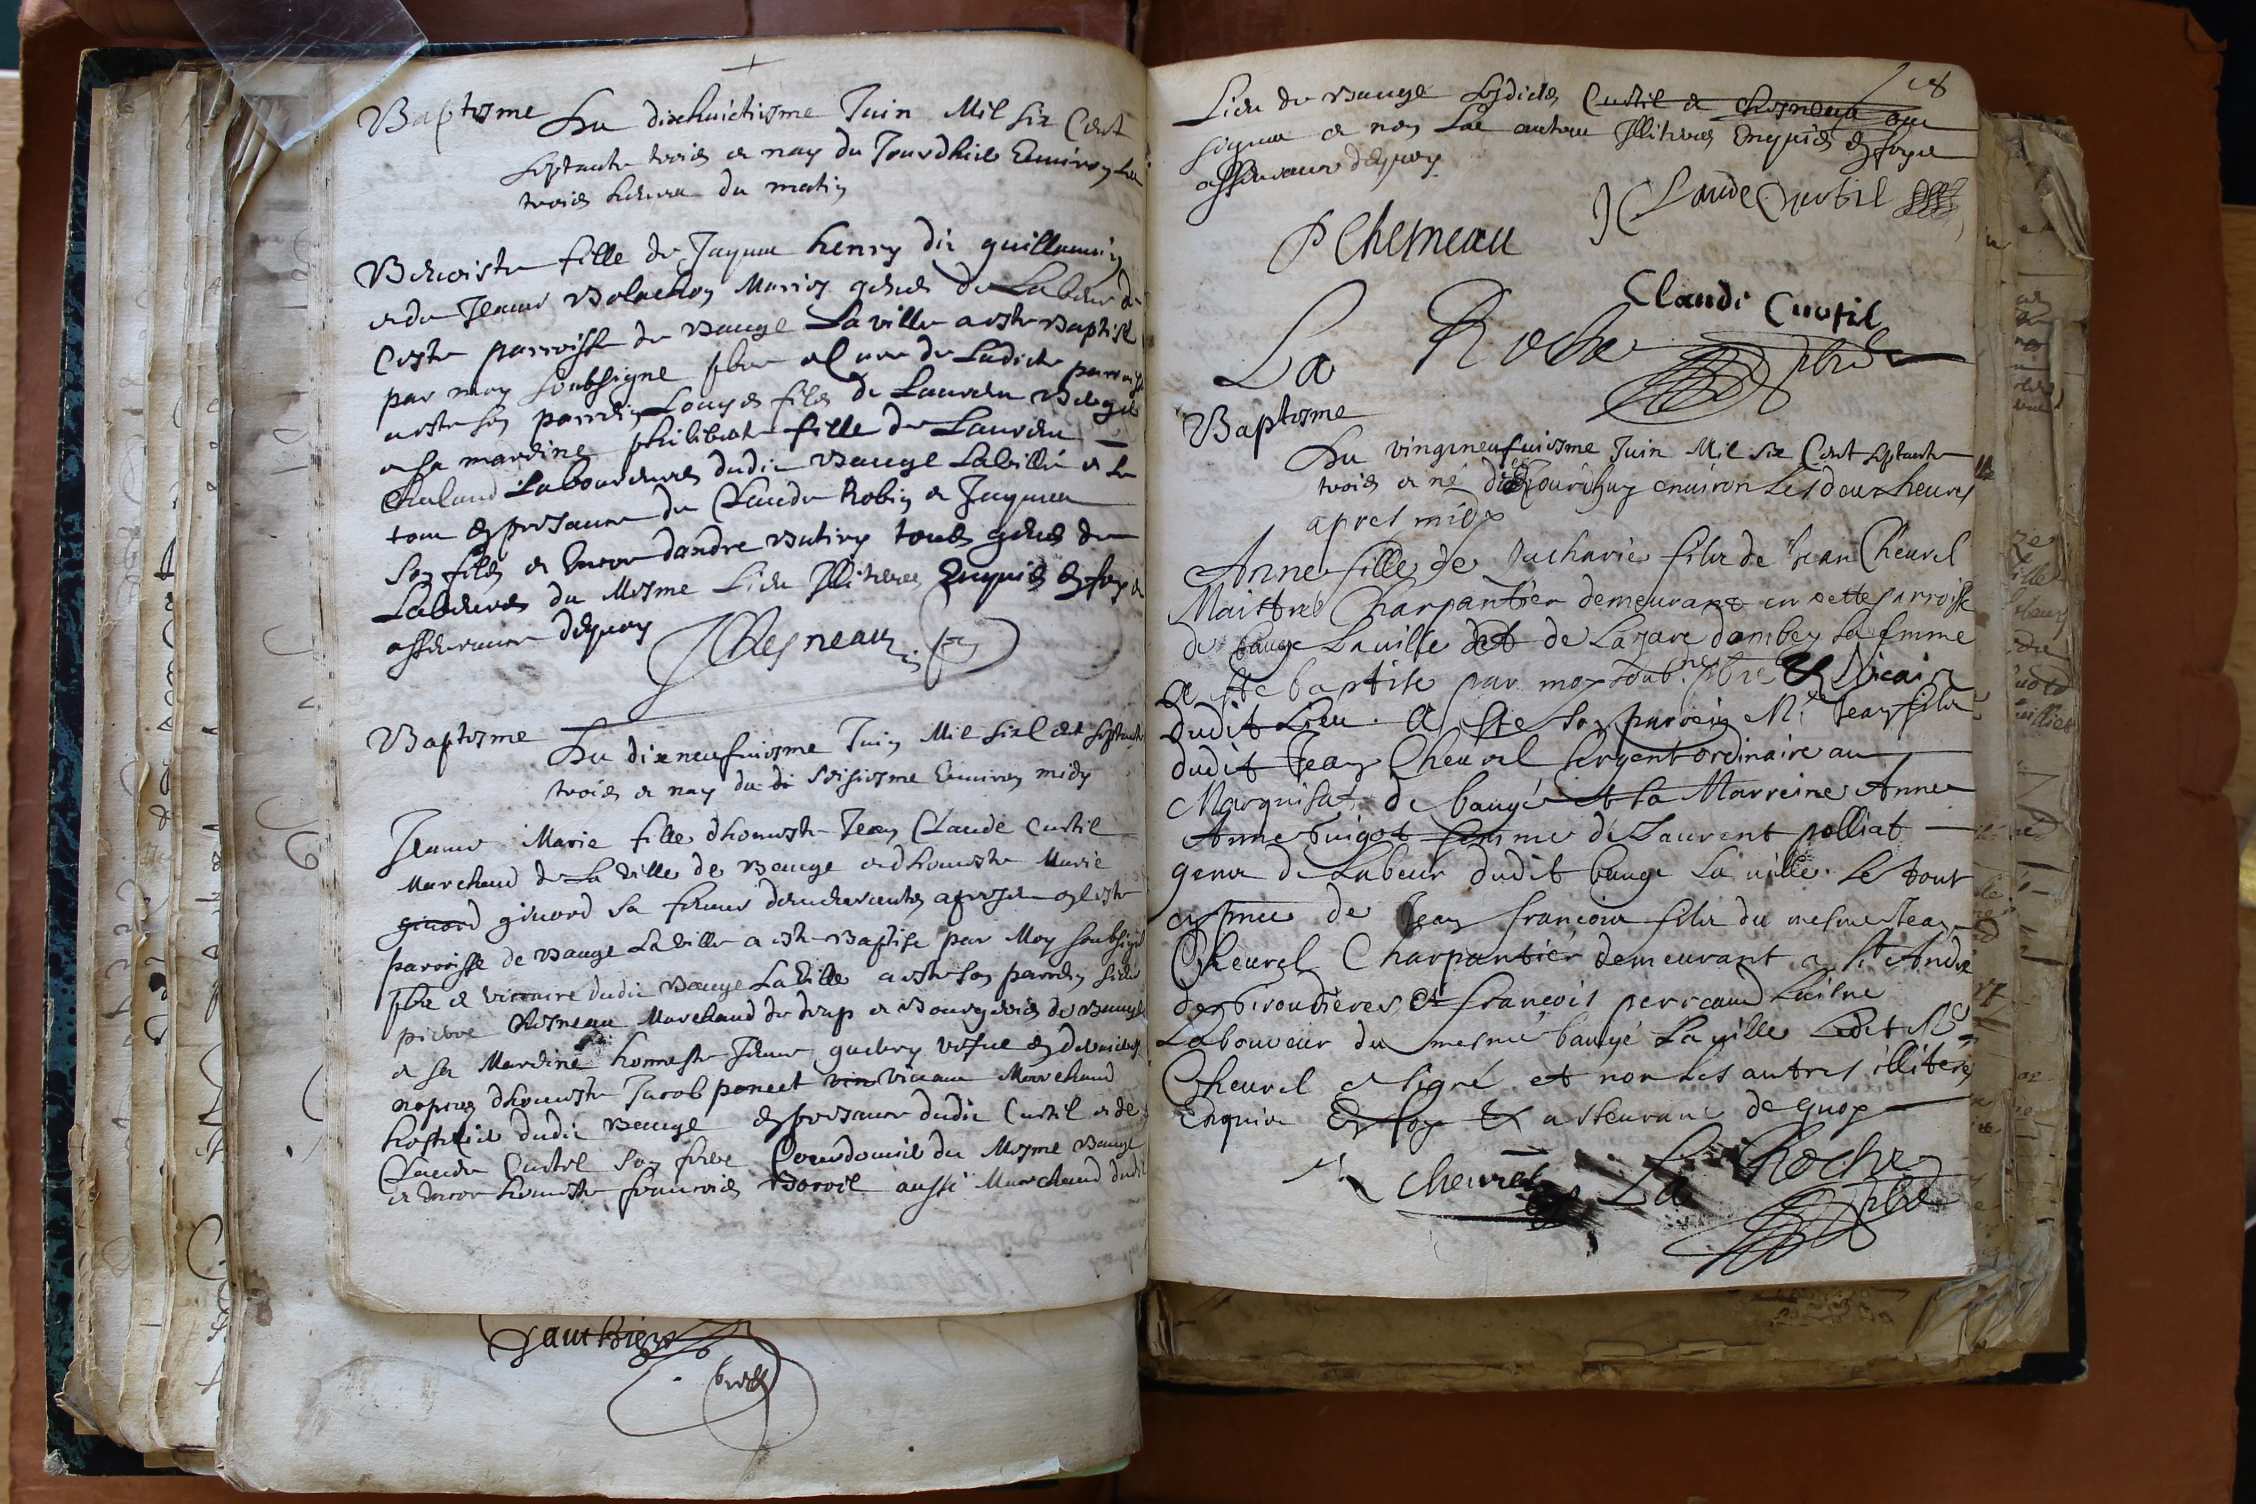 Baptesme
Du dixhuictiesme Juin Mil six Cent
septante trois et nay du Jourdhuit Environ les
trois heures du matin
Benoiste fille de Jaques henry dit guillemin
et de Jeanne Bolachon Mariez gens de Labeur de
Ceste parroisse de Baugé Laville a esté Baptisé
par moy soubsigne pbre et Cure de Ladicte parroisse
a esté son parrein Louys filz de Laurens
et sa mareine philiberte fille de Laurens
Chaland Laboureurs dudit Baugé Laville et le
tout en presance de Claude Robin et Jaques
son filz et Encor dandre Butin tous gens de
Labeurs du Mesme Lieu Illiteres Enquis en foy et
asseurance dequoy
JChesneau
Baptesme
Du dixneufuiesme Juin Mil six Cent septante
trois et nay du di seisiesme Environ midy
Jeanne Marie fille dhonneste Jean Claude Curtil
Marchand de La Ville de Baugé et dhonneste Marie
girord girord sa femme demeurantz a presen en ceste
parroisse de Baugé Laville a esté Baptise par Moy soubsigné
pbre et viccaire dudit Baugé Laville a esté son parrein sieur
pierre Chesneau Marchand de drap et Bourgeois de Baugé
et sa Mareine honneste Jeanne vefue en
nopces dhonneste Jacob poncet vin vivant Marchand
hoste dudit Baugé en presance dudit Curtil et de
Claude Curtil son frere Courdonnier du Mesme Baugé
et Encor honneste francois Borrel aussi Marchand dudit
gauthier
18
Lieu de Baugé Lesdictz Curtil et Chesneau ont
signé et non Les autres Illiteres Enquis en foy et
asseurance dequoy
J Claude Curtil
P Chesneau
Claude Curtil
La Roche pbre
Baptesme
Du vingtneufuiesme Juin Mil six Cent septante
trois et né du jourdhuy enuiron les deux heures
apres midy
Anne fille de Zacharie filz de Jean Cheurel
Maistre Charpantier demeurant en cette parroisse
de Baugé Lauille et de Lazare dambey sa femme
a esté baptisé par moy soub.né pbre et Vicair
dudit Lieu. A esté son parrein Mr Jean filz
dudit Jean Cheurel sergent ordinaire au
Marquisat de baugé et la Marreine Anne
Anne Guigot femme de Laurent polliat
gens de Labeur dudit bauge La uille. Le tout
en pnce de Jean francois filz du mesme Jean
Cheurel Charpantier demeurant a St André
des Viroudieres et francois perreaud Laisne
Laboureur du mesme baugé La uille Ledit Mr
Cheurel a signé et non les autres illiteres
enquis En foy et asseurance de quoy
Cheurel La Roche
pbre